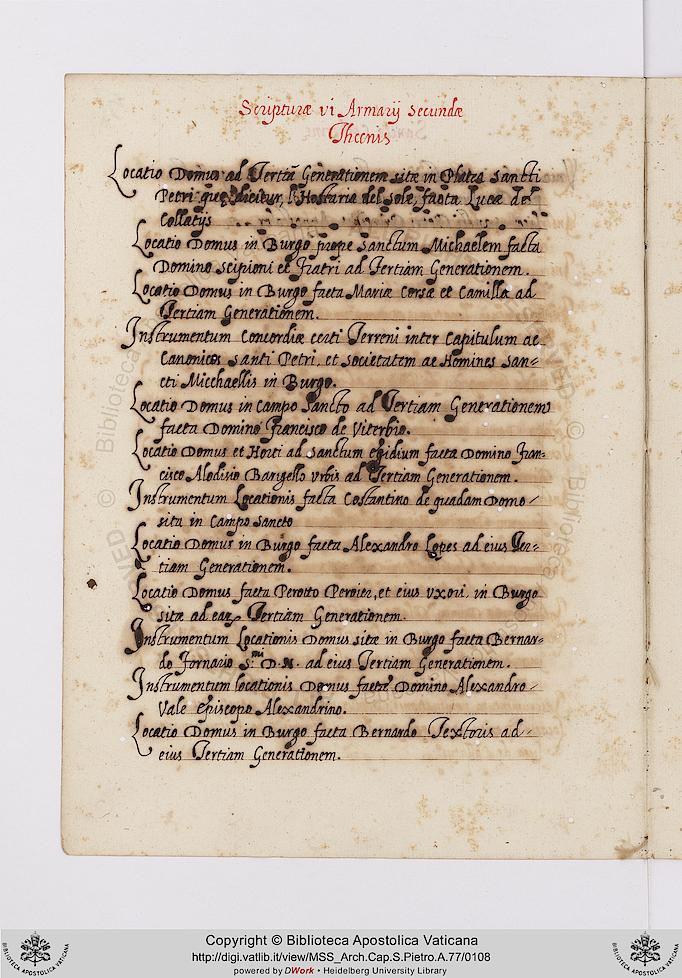 Scripturæ vi Armarij secundæ
Thecnis
Locatio Domus ad Tertiã Generationem sitæ in Platea Sancti
Petri que dicitur, l'Hostaria del sole, facta Lucæ de
Collatijs
Locatio Domus in Burgo prope Sanctum Michaelem facta
Domino Scipioni et Fratri ad Tertiam Generationem.
Locatio Domus in Burgo facta Mariæ Corsæ et Camillæ ad
Tertiam Generationem.
Instrumentum Concordiæ certi Terreni inter Capitulum ac
Canonicos Santi Petri, et Societatem ac Homines San=
cti Micchaellis in Burgo.
Locatio Domus in Campo Sancto ad Tertiam Generationem
facta Domino Francisco de Viterbio.
Locatio Domus et Horti ad Sanctum egidium facta Domino Fran=
cisco Alodisio Barigello Urbis ad Tertiam Generationem.
Instrumentum Locationis facta Costantino de quadam Domo
sita in Campo Sancto
Locatio Domus in Burgo facta Alexandro Lopes ad eius Ter=
tiam Generationem.
Locatio Domus facta Perotto et eius uxori in Burgo
sitæ ad Tertiam Generationem.
Instrumentum Locationis Domus sitæ in Burgo facta Bernar=
do Fornario S.mi D. N. ad eius Tertiam Generationem.
Instrumentum locationis Domus factæ Domino Alexandro
Vale Episcopo Alexandrino.
Locatio Domus in Burgo facta Bernardo Textoris ad
eius Tertiam Generationem.
Copyright © Biblioteca Apostolica Vaticana
http://digi.vatlib.it/view/MSS_Arch.Cap.S.Pietro.A.77/0108
powered by DWork • Heidelberg University Library